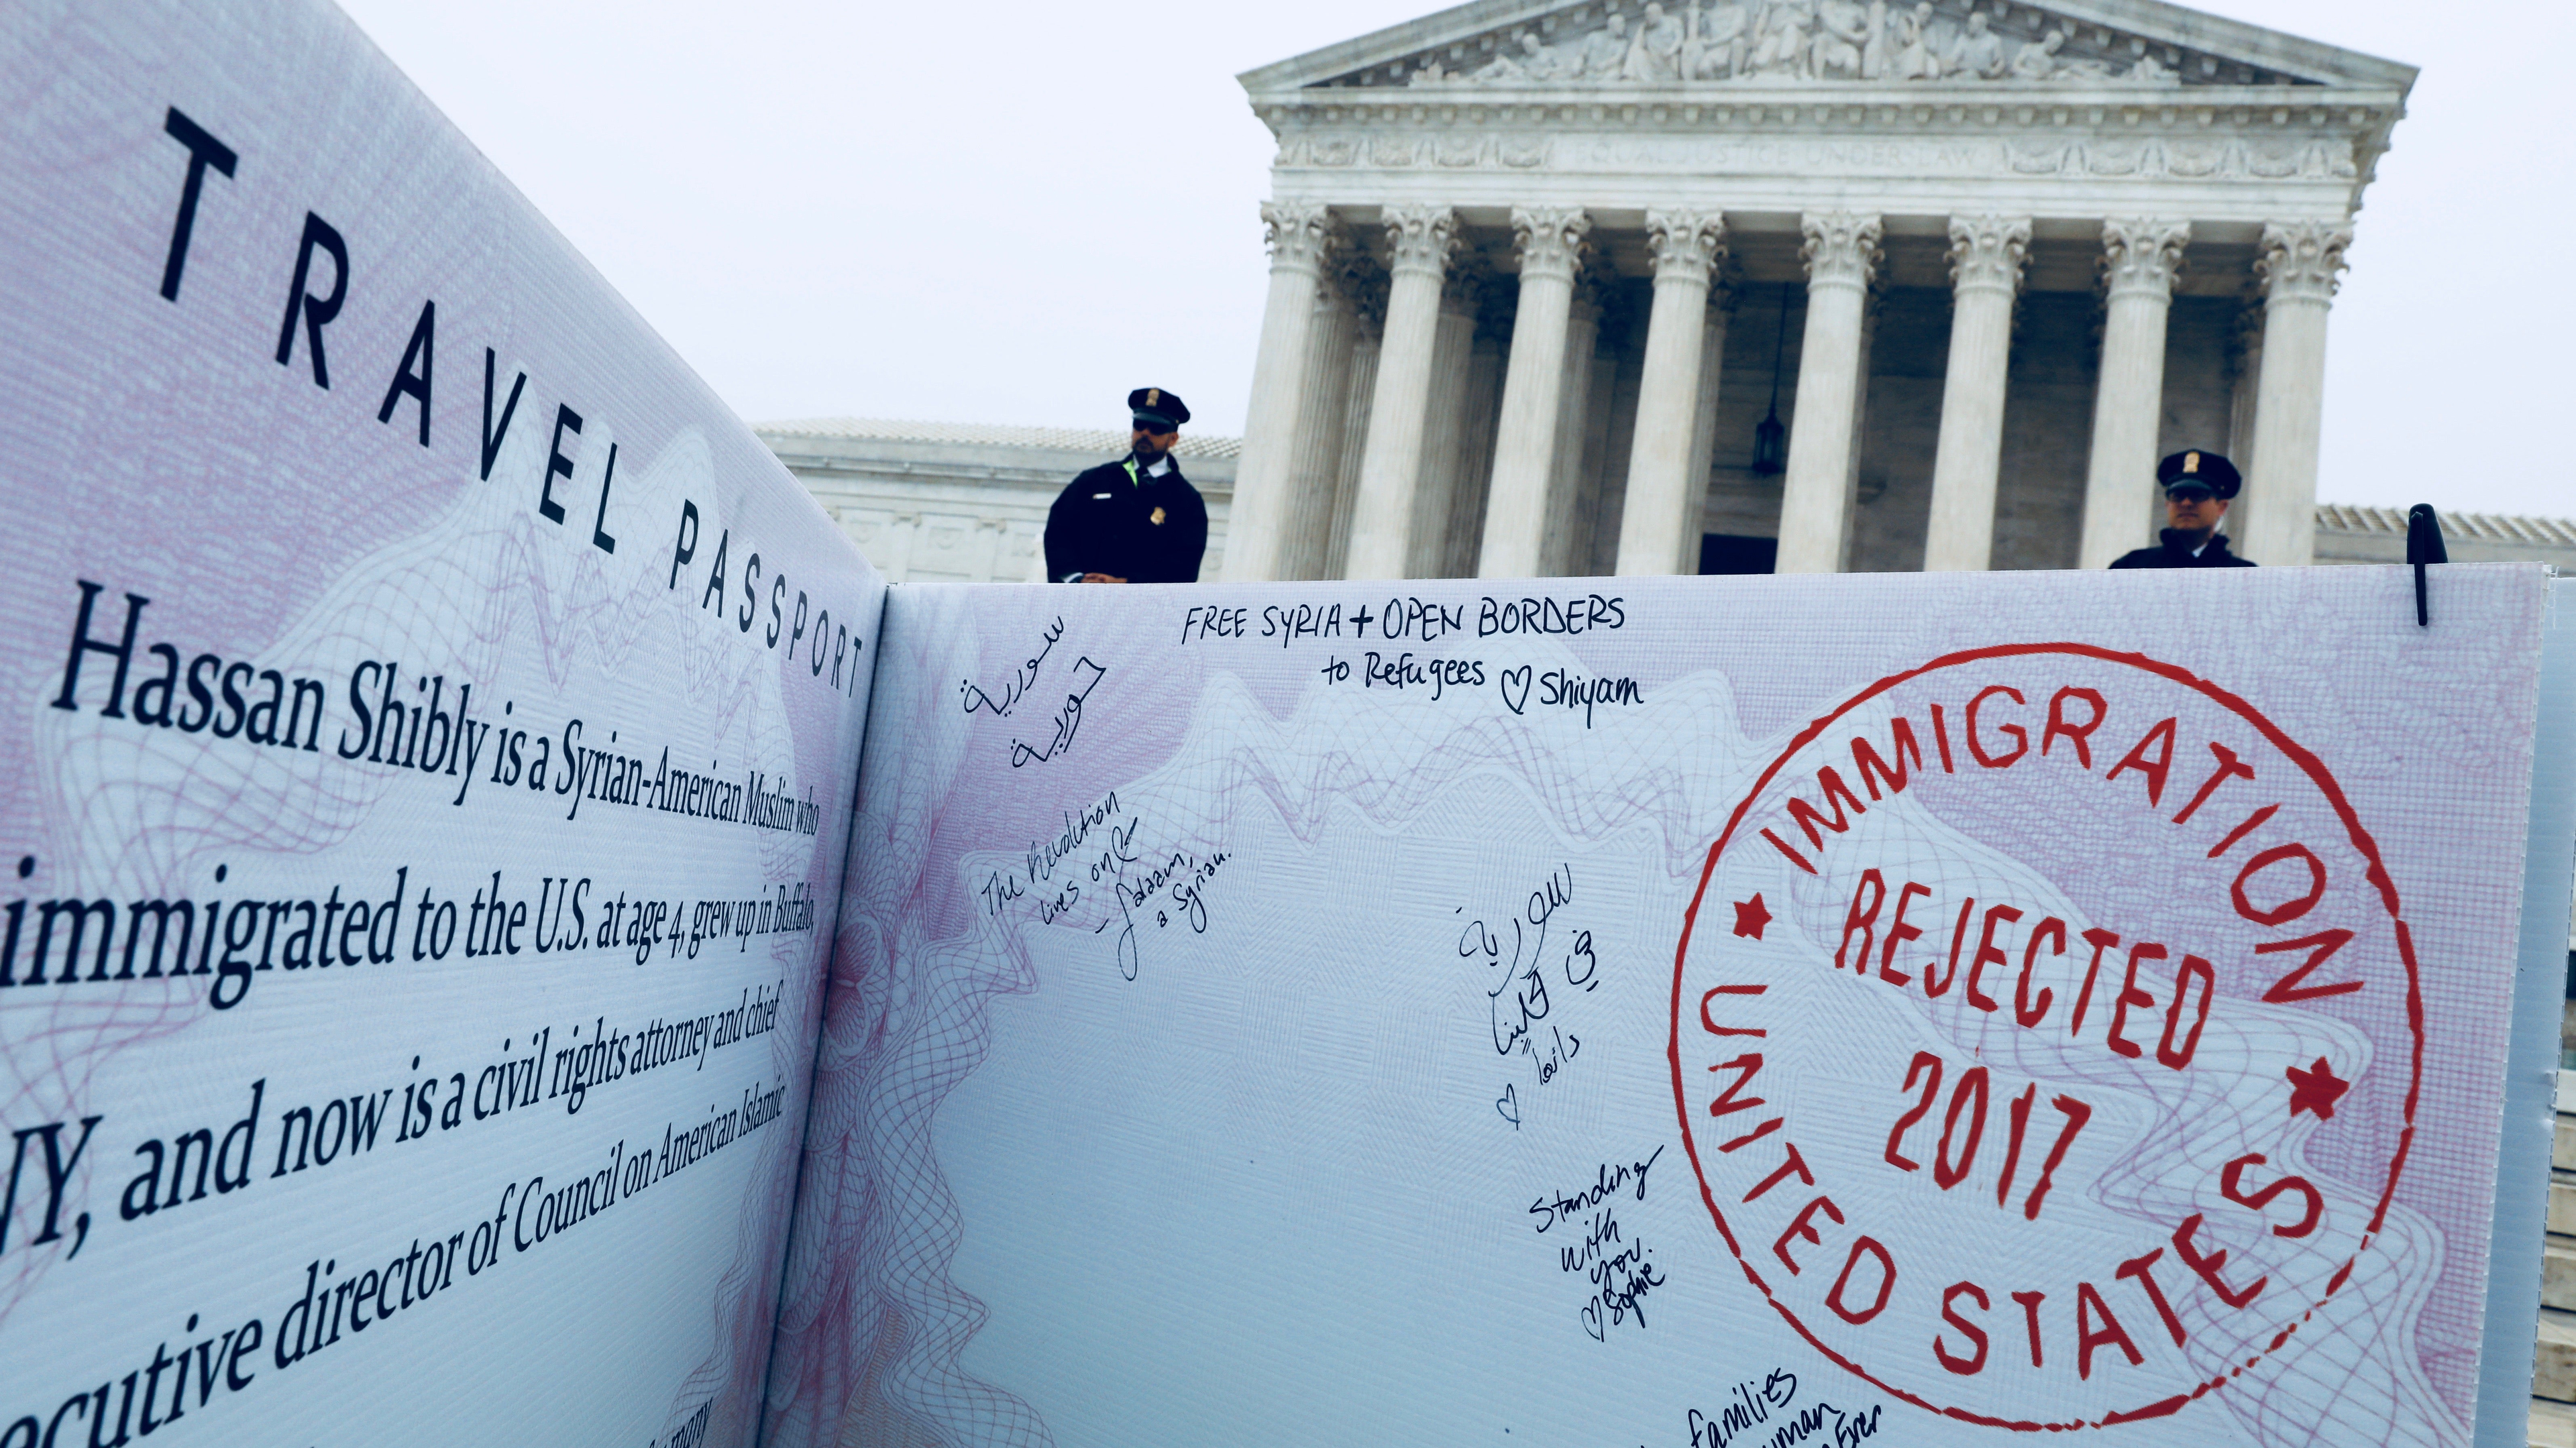 EQUAL JUSTICE UNDER LAW
TRAVEL PASSPORT
Hassan Shibly is a Syrian-American Muslim who
immigrated to the U.S. at age 4, grew up in Buffalo,
NY, and now is a civil rights attorney and chief
executive director of Council on American Islamic
many
سورية
حورية
FREE SYRIA + OPEN BORDERS
to Refugees ♡ Shiyam
The Revolution
lives on &
- Salaam,
a Syrian.
سورية
في
قلبنا
دائما
♡
Standing
with
you.
♡ Sophie
families
IMMIGRATION
REJECTED
2017
UNITED STATES